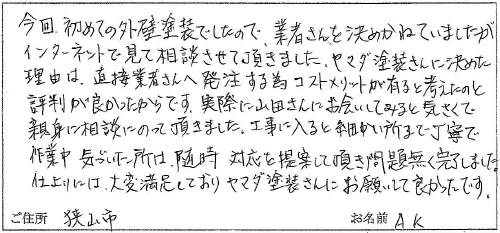 今回、初めての外壁塗装でしたので、業者さんを決めかねていましたが
インターネットで見て相談させて頂きました。ヤマダ塗装さんに決めた
理由は、直接業者さんへ発注する為コストメリットが有ると考えたのと
評判が良かったからです。実際に山田さんにお会いしてみると気さくで
親身に相談にのって頂きました。工事に入ると細かい所まで丁寧で
作業中 気づいた所は、随時 対応を提案して頂き問題無く完了しました。
仕上りには、大変満足しておりヤマダ塗装さんにお願いして良かったです。
ご住所 狭山市 お名前 A K